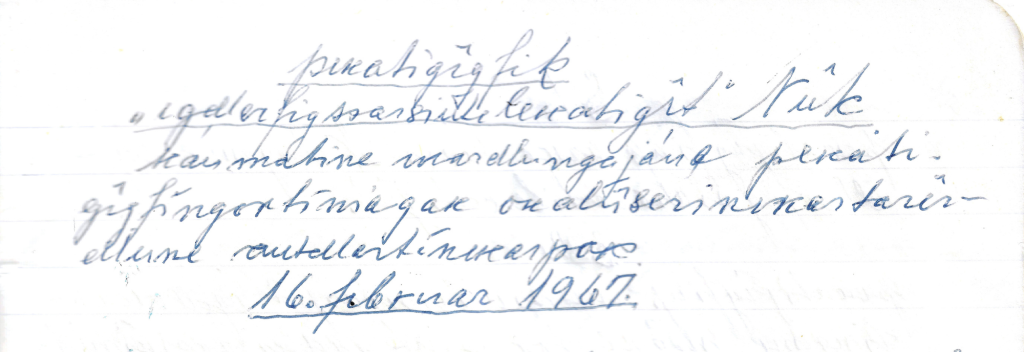 peĸatigîgfik
„igdlerfigssarsiutileĸatigît" Nûk
ĸáumatine mardlungajáne peĸati-
gîgfíngortíniagaĸ oĸalûserineĸartarêr-
dlune autdlartíneĸarpoĸ.
16. februar 1967.